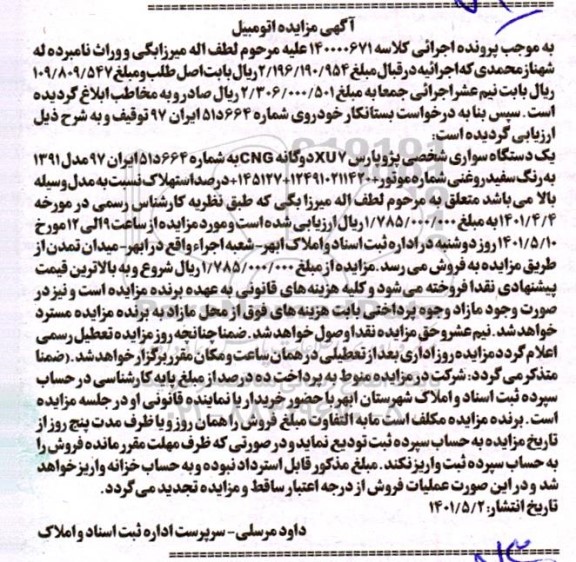 آگهی مزایده اتومبیل
به موجب پرونده اجرائی کلاسه ۱۴۰۰۰۰۶۷۱ علیه مرحوم لطف اله میرزابگی و وراث نامبرده له
شهناز محمدی که اجرائیه در قبال مبلغ ۲/۱۹۶/۱۹۰/۹۵۴ ریال بابت اصل طلب و مبلغ ۱۰۹/۸۰۹/۵۴۷
ریال بابت نیم عشر اجرائی جمعا به مبلغ ۲/۳۰۶/۰۰۰/۵۰۱ ریال صادر و به مخاطب ابلاغ گردیده
است. سپس بنا به درخواست بستانکار خودروی شماره ۶۶۴د۵۱ ایران ۹۷ توقیف و به شرح ذیل
ارزیابی گردیده است:
یک دستگاه سواری شخصی پژو پارس XU7 دوگانه CNG به شماره ۶۶۴د۵۱ ایران ۹۷ مدل ۱۳۹۱
به رنگ سفید روغنی شماره موتور ۱۲۴۹۱۰۲۱۱۴۲۰+۱۴۵۱۲۷۰+ درصد استهلاک نسبت به مدل وسیله
بالا می باشد متعلق به مرحوم لطف اله میرزا بگی که طبق نظریه کارشناس رسمی در مورخه
۱۴۰۱/۴/۴ به مبلغ ۱/۷۸۵/۰۰۰/۰۰۰ ریال ارزیابی شده است و مورد مزایده از ساعت ۹ الی ۱۲ مورخ
۱۴۰۱/۵/۱۰ روز دوشنبه در اداره ثبت اسناد و املاک ابهر- شعبه اجراء واقع در ابهر- میدان تمدن از
طریق مزایده به فروش می رسد. مزایده از مبلغ ۱/۷۸۵/۰۰۰/۰۰۰ ریال شروع و به بالاترین قیمت
پیشنهادی نقدا فروخته می شود و کلیه هزینه های قانونی به عهده برنده مزایده است و نیز در
صورت وجود مازاد وجوه پرداختی بابت هزینه های فوق از محل مازاد به برنده مزایده مسترد
خواهد شد. نیم عشر و حق مزایده نقدا وصول خواهد شد. ضمنا چنانچه روز مزایده تعطیل رسمی
اعلام گردد مزایده روز اداری بعد از تعطیلی در همان ساعت و مکان مقرر برگزار خواهد شد. (ضمنا
متذکر می گردد: شرکت در مزایده منوط به پرداخت ده درصد از مبلغ پایه کارشناسی در حساب
سپرده ثبت اسناد و املاک شهرستان ابهر با حضور خریدار یا نماینده قانونی او در جلسه مزایده
است. برنده مزایده مکلف است مابه التفاوت مبلغ فروش را همان روز و یا ظرف مدت پنج روز از
تاریخ مزایده به حساب سپرده ثبت تودیع نماید و در صورتی که ظرف مهلت مقرر مانده فروش را
به حساب سپرده ثبت واریز نکند. مبلغ مذکور قابل استرداد نبوده و به حساب خزانه واریز خواهد
شد و در این صورت عملیات فروش از درجه اعتبار ساقط و مزایده تجدید می گردد.
تاریخ انتشار: ۱۴۰۱/۵/۲
داود مرسلی- سرپرست اداره ثبت اسناد و املاک